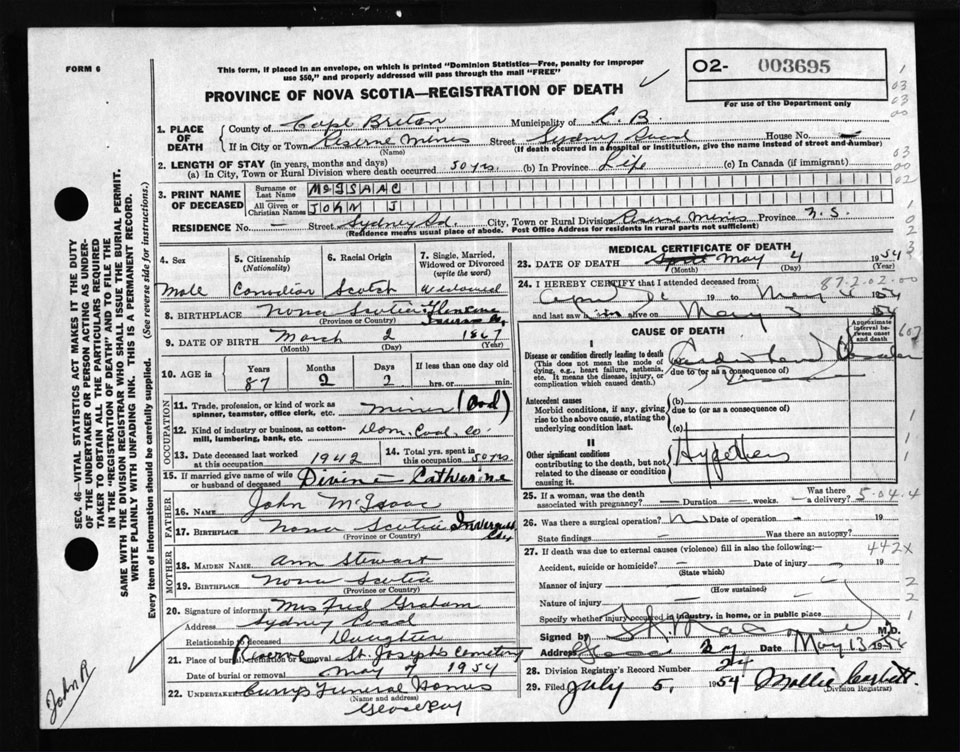 FORM 6
This form, if placed in an envelope, on which is printed "Dominion Statistics—Free, penalty for improper
use $50," and properly addressed will pass through the mail "FREE"
O2- 003695
For use of the Department only
PROVINCE OF NOVA SCOTIA—REGISTRATION OF DEATH
1. PLACE OF DEATH County of Cape Breton Municipality of C. B.
If in City or Town Reserve Mines Street Sydney Road House No. —
(Name) (If death occurred in a hospital or institution, give the name instead of street and number)
2. LENGTH OF STAY (in years, months and days)
(a) In City, Town or Rural Division where death occurred 50 yrs (b) In Province Life (c) In Canada (if immigrant)
3. PRINT NAME OF DECEASED Surname or Last Name McISAAC
All Given or Christian Names JOHN J
RESIDENCE No. — Street Sydney Rd. City, Town or Rural Division Reserve Mines Province N. S.
(Residence means usual place of abode. Post Office Address for residents in rural parts not sufficient)
4. Sex 5. Citizenship (Nationality) 6. Racial Origin 7. Single, Married, Widowed or Divorced (write the word)
Male Canadian Scotch Widowed
8. BIRTHPLACE Nova Scotia
(Province or Country)
9. DATE OF BIRTH March 2 1867
(Month) (Day) (Year)
10. AGE in Years Months Days If less than one day old
87 2 2 hrs. or min.
OCCUPATION
11. Trade, profession, or kind of work as spinner, teamster, office clerk, etc. miner (Coal)
12. Kind of industry or business, as cotton-mill, lumbering, bank, etc. Dom. Coal. Co.
13. Date deceased last worked at this occupation 1942 14. Total yrs. spent in this occupation 50 yrs.
15. If married give name of wife or husband of deceased Divine Catharine
FATHER
16. Name John McIsaac
17. BIRTHPLACE Nova Scotia Inverness
(Province or Country)
MOTHER
18. MAIDEN NAME Ann Stewart
19. BIRTHPLACE Nova Scotia
(Province or Country)
20. Signature of informant Mrs Fred Graham
Address Sydney Road
Relationship to deceased Daughter
21. Place of burial, cremation or removal Reserve St. Joseph's Cemetery
Date of burial or removal May 7 1954
22. Undertaker Curry's Funeral Homes
(Name and address)
Glace Bay
MEDICAL CERTIFICATE OF DEATH
23. DATE OF DEATH May 4 1954
(Month) (Day) (Year)
24. I HEREBY CERTIFY that I attended deceased from: 87.2.02.00
April 19 to May 1954
and last saw him alive on May 3 1954
CAUSE OF DEATH
Approximate interval between onset and death
I
Disease or condition directly leading to death
(This does not mean the mode of dying, e.g., heart failure, asthenia, etc. It means the disease, injury, or complication which caused death.)
due to (or as a consequence of)
Antecedent causes
Morbid conditions, if any, giving rise to the above cause, stating the underlying condition last.
(b)
due to (or as a consequence of)
(c)
II
Other significant conditions
contributing to the death, but not related to the disease or condition causing it.
25. If a woman, was the death associated with pregnancy? — Duration — weeks. — Was there a delivery?
5.04.4
26. Was there a surgical operation? Date of operation - 19
State findings — Was there an autopsy?
27. If death was due to external causes (violence) fill in also the following:-
442X
Accident, suicide or homicide? — Date of injury — 19
(State which)
Manner of injury —
(How sustained)
Nature of injury —
Specify whether injury occurred in industry, in home, or in public place
Signed by M.D.
Address Glace Bay Date May 13 1954
28. Division Registrar's Record Number 24
29. Filed July 5, 1954 Mollie Corbett
(Division Registrar)
SEC. 46—VITAL STATISTICS ACT MAKES IT THE DUTY
OF THE UNDERTAKER OR PERSON ACTING AS UNDER-
TAKER TO OBTAIN ALL THE PARTICULARS REQUIRED
IN THE "REGISTRATION OF DEATH" AND TO FILE THE
SAME WITH THE DIVISION REGISTRAR WHO SHALL ISSUE THE BURIAL PERMIT.
WRITE PLAINLY WITH UNFADING INK. THIS IS A PERMANENT RECORD.
Every item of information should be carefully supplied. (See reverse side for instructions.)
John R